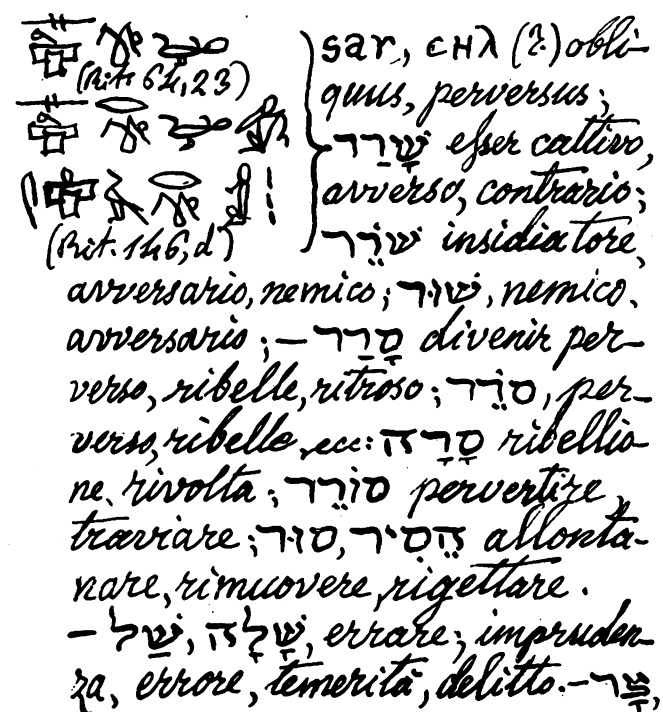 sar, ϲⲏⲗ (?) obli-
(Rit. 64, 23)
quus, perversus;
שָׁרַר esser cattivo,
avverso, contrario;
(Rit. 146, d)
שׁוֹרֵר insidiatore,
avversario, nemico; שׁוּר, nemico.
avversario; – סָרַר divenir per-
verso, ribelle, ritroso; סוֹרֵר, per-
verso, ribelle, ecc: סָרָה ribellio-
ne, rivolta; סוֹרֵר pervertire,
travviare; סוּר, הֵסִיר allonta-
nare, rimuovere, rigettare.
– שַׁל, שָׁלָה, errare; impruden-
za, errore, temerità, delitto. –